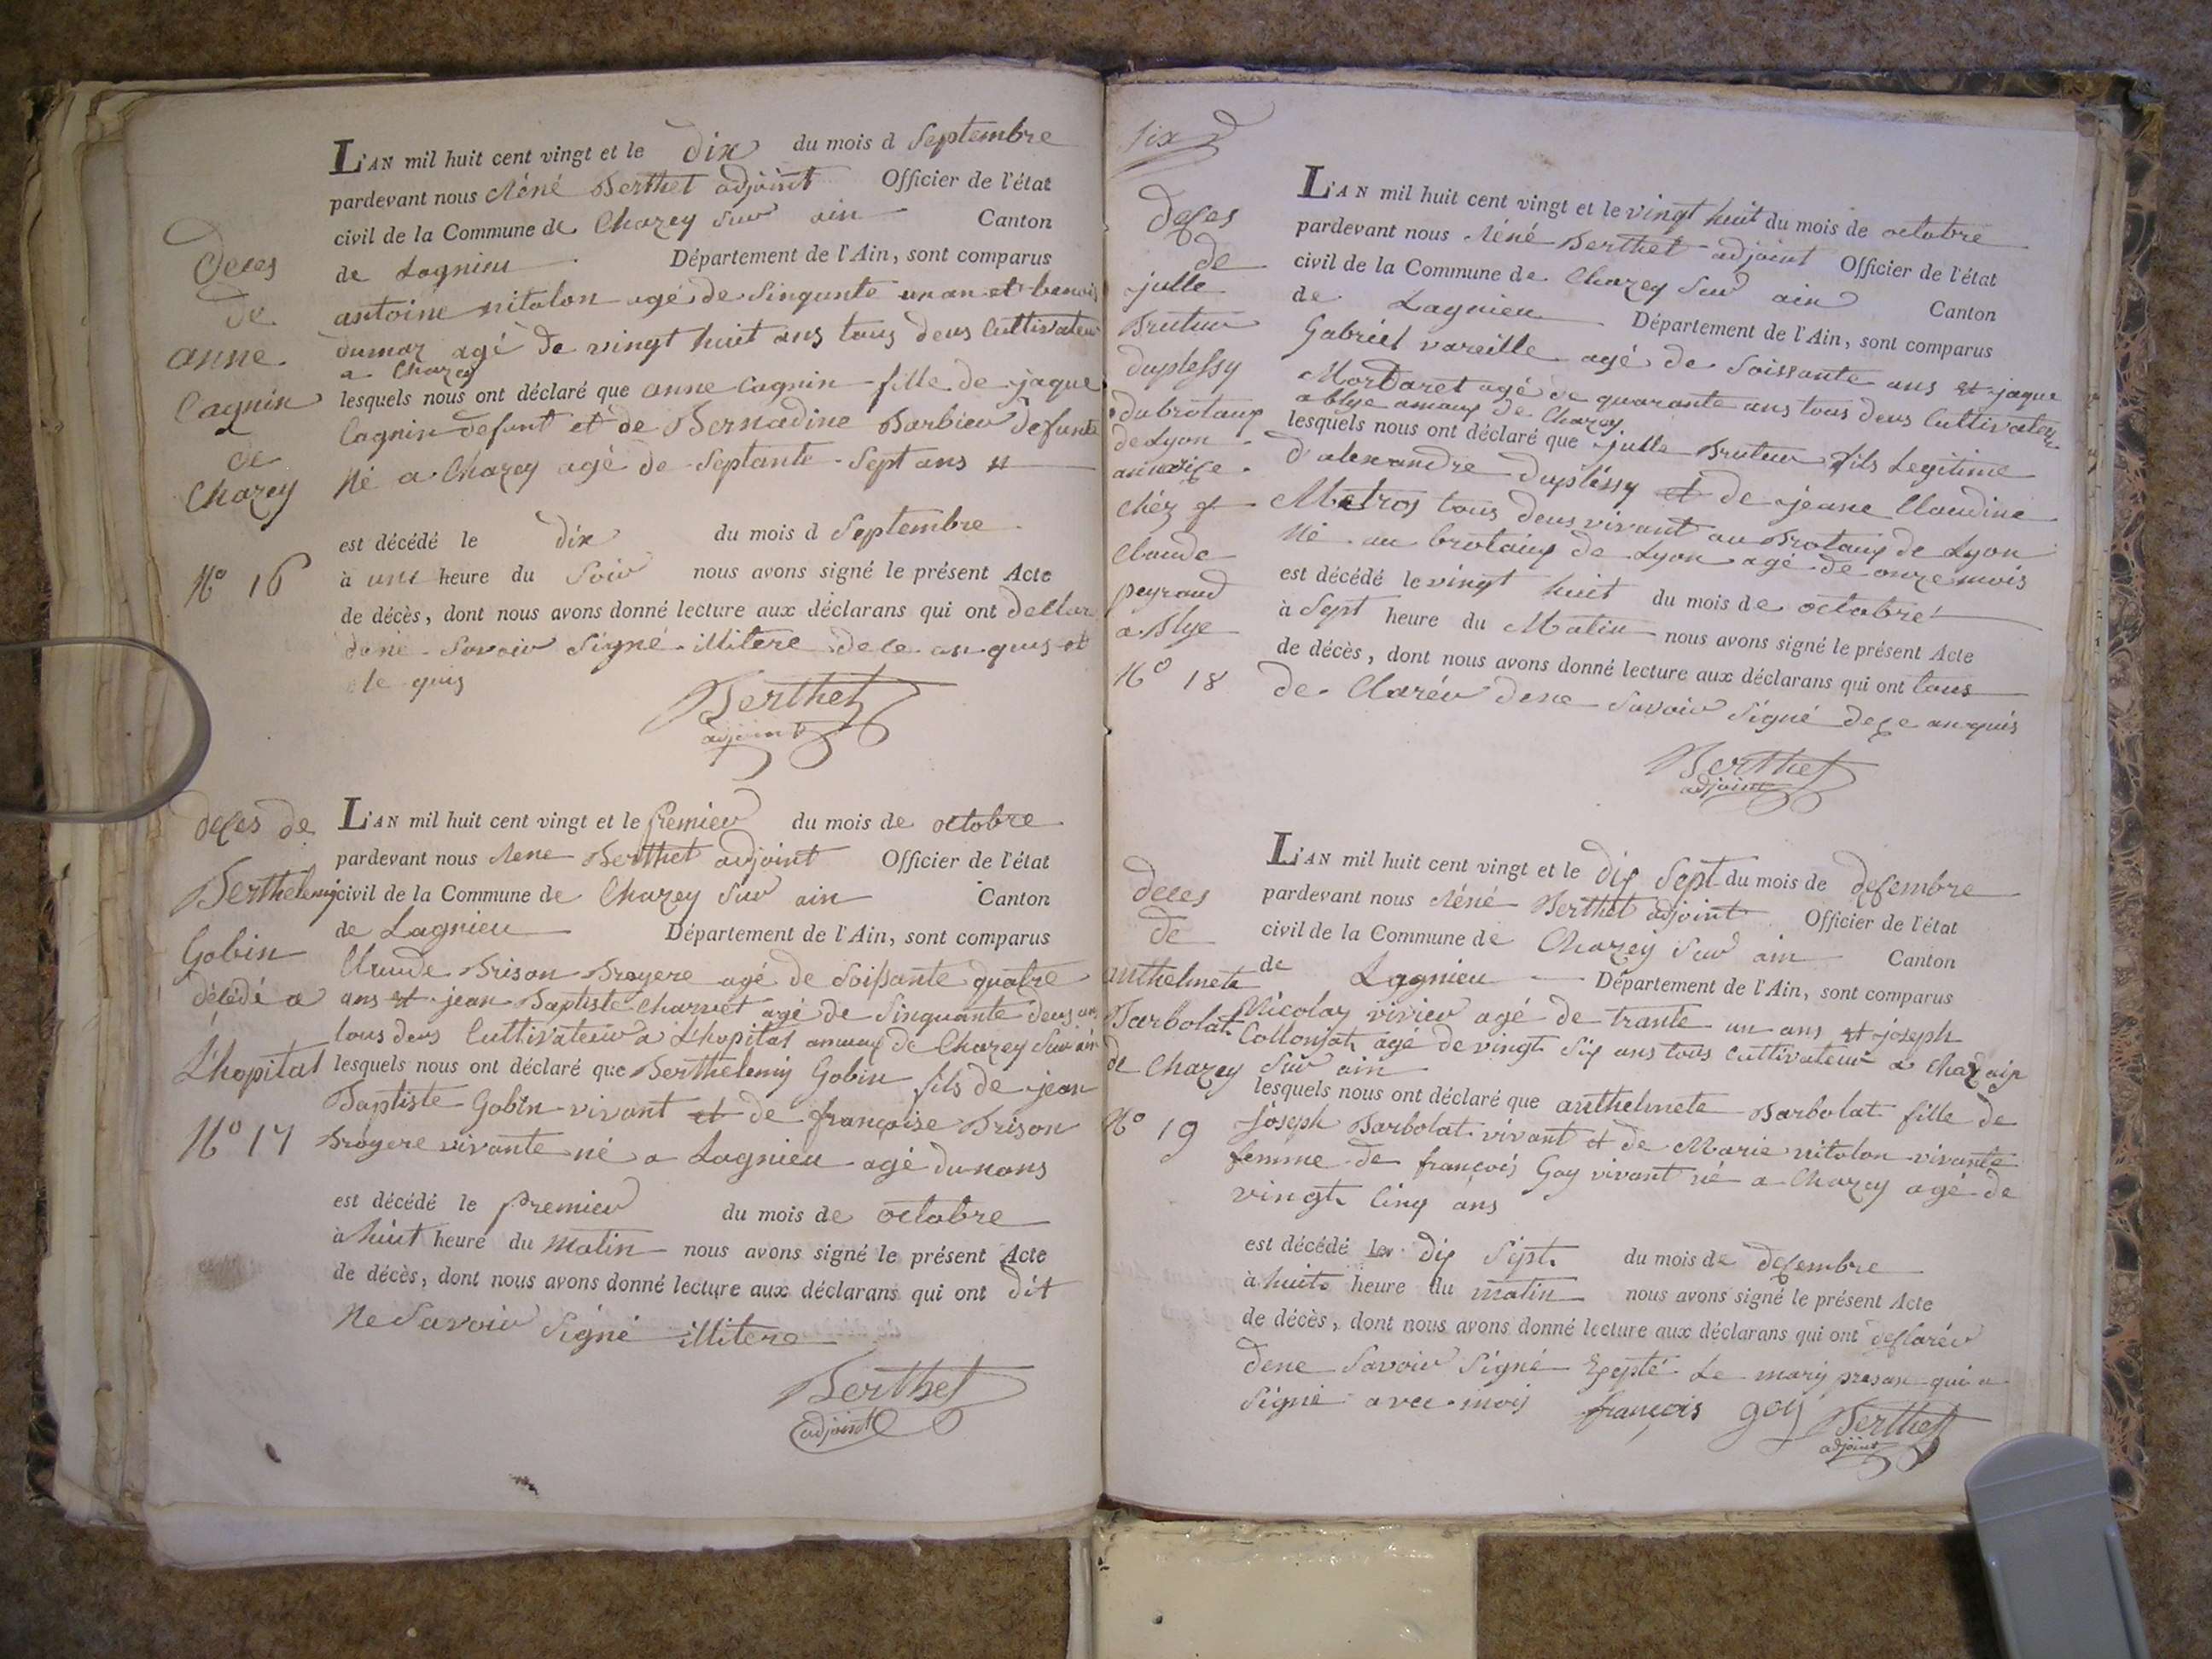 Deces
de
anne
Cagnin
de
Chazey
N° 16
L'AN mil huit cent vingt et le dix du mois d Septembre
pardevant nous réné Berthet adjoint Officier de l'état
civil de la Commune de Chazey Sur ain Canton
de Lagnieu Département de l'Ain, sont comparus
antoine nitolon agé de Sinqunte un an et benois
dumaz agé de vingt huit ans tous deus Cultivateur
a Chazey
lesquels nous ont déclaré que anne Cagnin fille de jaque
Cagnin defunt et de Bernadine Barbier defunte
Né a Chazey agé de Septante Sept ans
est décédé le dix du mois d Septembre
à une heure du Soir nous avons signé le présent Acte
de décès, dont nous avons donné lecture aux déclarans qui ont dellar
de ne Savoir Signé illitere de ce anquis et
quis
Berthet
adjoint
deces de
Berthelemy
Gobin
décédé a
L'hopital
N° 17
L'AN mil huit cent vingt et le premier du mois de octobre
pardevant nous rene Berthet adjoint Officier de l'état
civil de la Commune de Chazey Sur ain Canton
de Lagnieu Département de l'Ain, sont comparus
Claude Brison Broyere agé de Soissante quatre
ans et jean Baptiste Charvet agé de Sinquante deus ans
tous deus Cultivateur a L'hopital amaux de Chazey Sur ain
lesquels nous ont déclaré que Berthelemy Gobin fils de jean
Baptiste Gobin vivant et de françoise Brison
Broyere vivante né a Lagnieu agé du nans
est décédé le premier du mois de octobre
à huit heure du Matin nous avons signé le présent Acte
de décès, dont nous avons donné lecture aux déclarans qui ont dit
Ne Savoir Signé illitere
Berthet
adjoint
six
deces
de
julle
Bruteur
duplessy
du brotaux
de Lyon
chéz
Claude
peyraud
a Blye
N° 18
L'AN mil huit cent vingt et le vingt huit du mois de octobre
pardevant nous réné Berthet adjoint Officier de l'état
civil de la Commune de Chazey Sur ain Canton
de Lagnieu Département de l'Ain, sont comparus
Gabriel vareille agé de Soissante ans et jaque
Mordaret agé de quarante ans tous deus Cultivateur
a blye amaux de Chazey
lesquels nous ont déclaré que julle Bruteur fils Legitime
d'alexandre duplessy et de jeane Claudine
Metros tous deus vivant au Brotaux de Lyon
Né au brotaux de Lyon agé de onze mois
est décédé le vingt huit du mois de octobre
à Sept heure du Matin nous avons signé le présent Acte
de décès, dont nous avons donné lecture aux déclarans qui ont tous
de Claréer de ne Savoir Signé de ce anquis
Berthet
adjoint
deces
de
anthelmete
Barbolat
de Chazey
N° 19
L'AN mil huit cent vingt et le dix Sept du mois de desembre
pardevant nous réné Berthet adjoint Officier de l'état
civil de la Commune de Chazey Sur ain Canton
de Lagnieu Département de l'Ain, sont comparus
Nicolas vivier agé de trante un ans et joseph
Collonjat agé de vingt Six ans tous Cultivateur a Chazey
Sur ain
lesquels nous ont déclaré que anthelmete Barbolat fille de
joseph Barbolat vivant et de Marie nitolon vivante
femme de françois Goy vivant né a Chazey agé de
vingt Cinq ans
est décédé le dix Sept du mois de desembre
à huit heure du matin nous avons signé le présent Acte
de décès, dont nous avons donné lecture aux déclarans qui ont desclaréer
de ne Savoir Signé Exepté Le mary presan qui a
Signé avec mois françois goy Berthet
adjoint